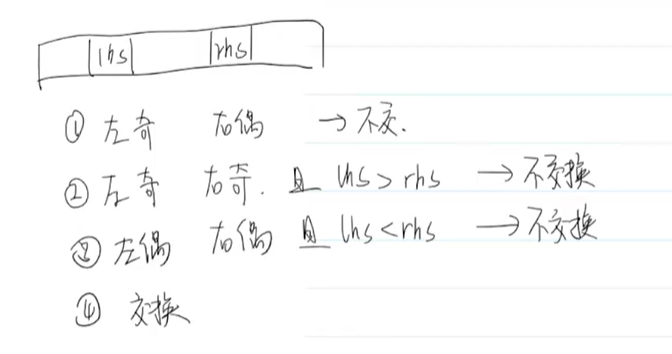 lhs rhs
① 左奇 右偶 → 不交.
② 左奇 右奇. 且 lhs > rhs → 不交换
③ 左偶 右偶 且 lhs < rhs → 不交换
④ 交换